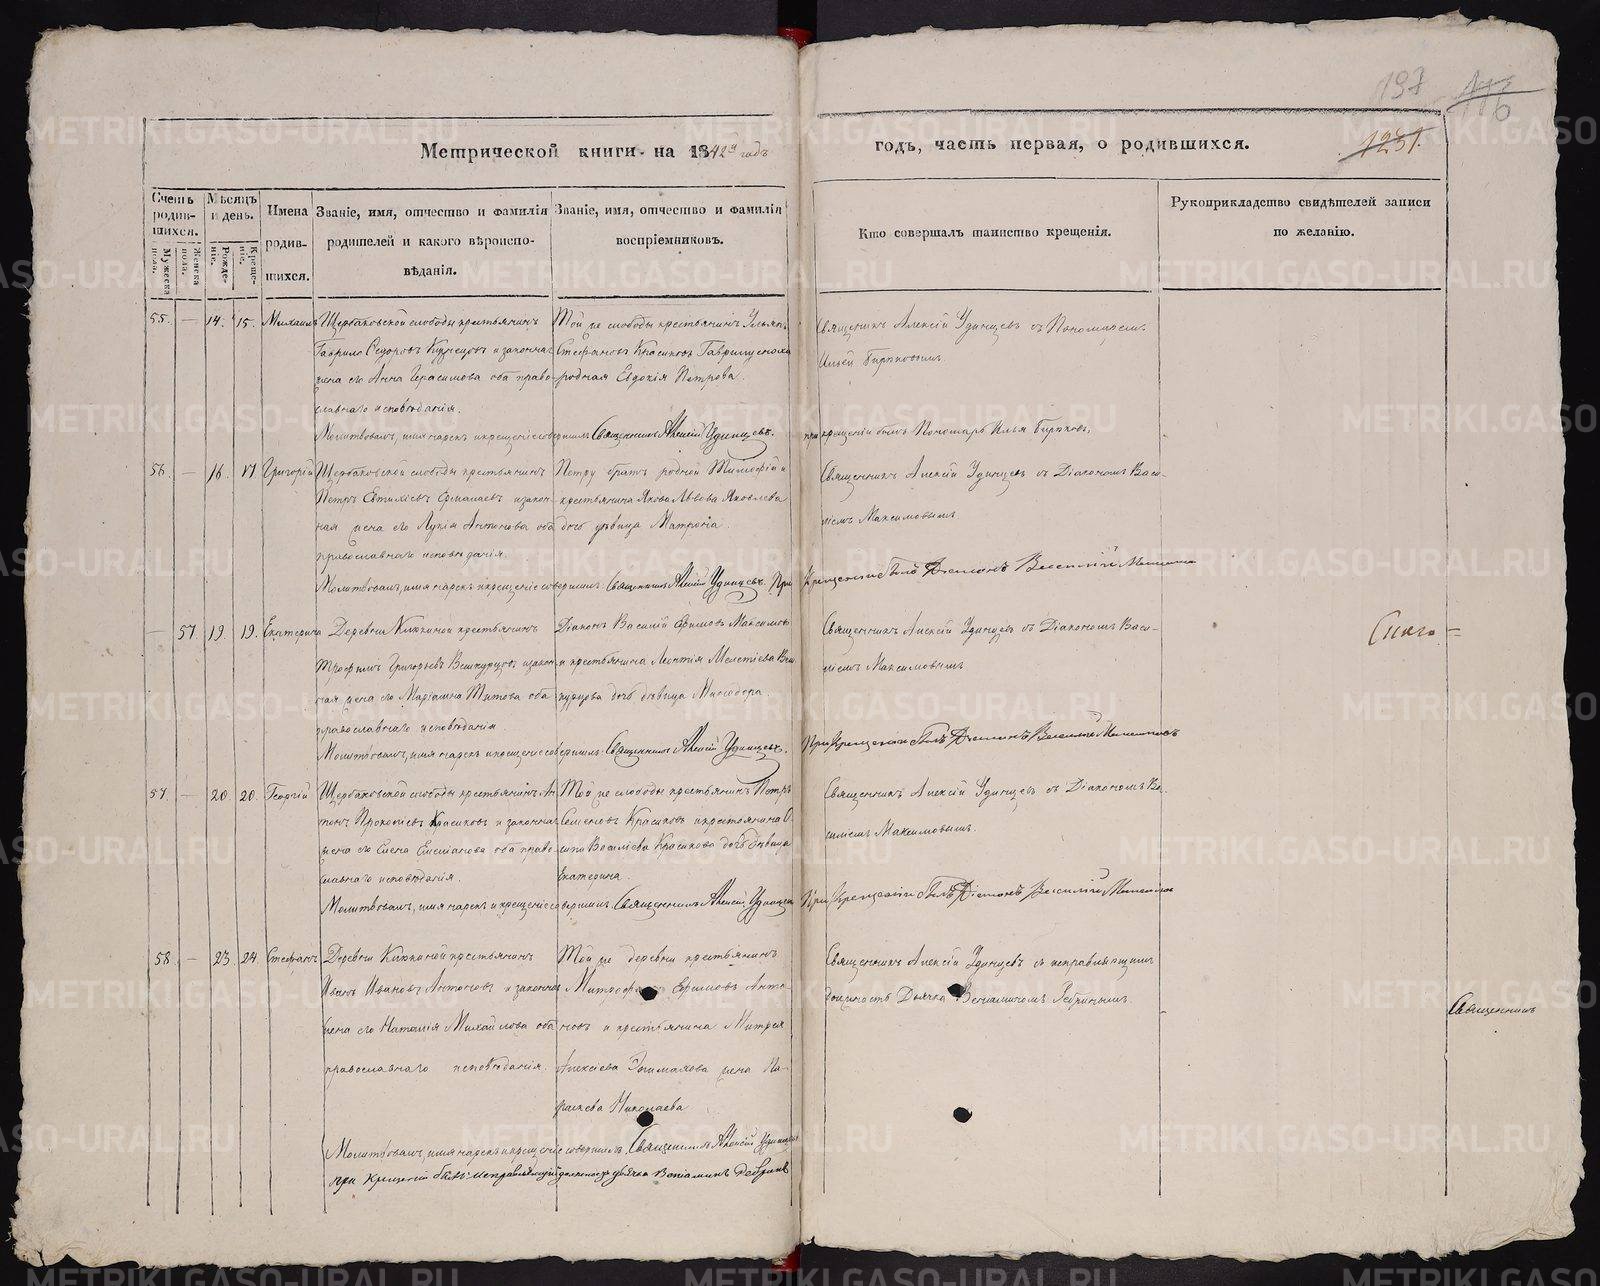 197
116
1231.
Метрической книги на 1842й годъ
годъ, часть первая, о родившихся.
Счетъ родив-шихся.
Мужеска пола.
Женска пола.
Мѣсяцъ и день.
Рожде-ніе.
Креще-ніе.
Имена родив-шихся.
Званіе, имя, отчество и фамилія
родителей и какого вѣроиспо-
вѣданія.
Званіе, имя, отчество и фамилія
воспріемниковъ.
Кто совершалъ таинство крещенія.
Рукоприкладство свидѣтелей записи
по желанію.
55. — 14. 15. Михаилъ
Щербаковской слободы крестьянинъ
Гаврило Седоровъ Кузнецовъ и законная
жена его Анна Герасимова оба право-
славнаго исповѣданія.
Той же слободы крестьянинъ
Стефановъ Красиковъ
родная Евдокія Петрова.
Священникъ Алексій Удинцевъ съ Пономаремъ
Ильей Бирюковымъ
Молитвовалъ, имя нарекъ и крещеніе совершилъ Священникъ Алексій Удинцевъ.
при крещеніи былъ Пономарь Илья Бирюковъ.
56. — 16. 17. Григорій
Щербаковской слободы крестьянинъ
Петръ и закон-
ная жена его Лукія Антонова оба
православнаго исповѣданія.
Петру братъ родной Тимофій и
крестьянина Якова Львова Яковлева
дочь дѣвица Матрона.
Священникъ Алексій Удинцевъ съ Діакономъ Васи-
ліемъ Максимовымъ
Молитвовалъ, имя нарекъ и крещеніе совершилъ Священникъ Алексій Удинцевъ. При
Крещеніи былъ Діаконъ Василій
— 57. 19. 19. Екатерина
Деревни крестьянинъ
Трофимъ Григорьевъ и закон-
ная жена его Маріамна Титова оба
православнаго исповѣданія
Діаконъ Василій Ефимовъ Максимовъ
и крестьянина Леонтія Мелетіева
дочь дѣвица
Священникъ Алексій Удинцевъ съ Діакономъ Васи-
ліемъ Максимовымъ
Молитвовалъ, имя нарекъ и крещеніе совершилъ Священникъ Алексій Удинцевъ.
При Крещеніи былъ Діаконъ Василій Максимовъ
57. — 20. 20. Георгій
Щербаковской слободы крестьянинъ Ан-
тонъ Прокопіевъ Красиковъ и законная
жена его Елена Емеліанова оба право-
славнаго исповѣданія.
Той же слободы крестьянинъ Петръ
Семеновъ Красиковъ и крестьянина
Василіева Красикова дочь дѣвица
Екатерина.
Священникъ Алексій Удинцевъ съ Діакономъ Ва-
силіемъ Максимовымъ.
Молитвовалъ, имя нарекъ и крещеніе совершилъ Священникъ Алексій Удинцевъ
При Крещеніи былъ Діаконъ Василій
58. — 23. 24. Стефанъ
Деревни крестьянинъ
Иванъ Ивановъ Антоновъ и законная
жена его Наталія Михайлова оба
православнаго исповѣданія.
Той же деревни крестьянинъ
Ефимовъ Анто-
новъ и крестьянина
Алексіева жена Па-
раскева Николаева
Священникъ Алексій Удинцевъ съ исправляющимъ
должность Дьячка Веніаминомъ
Молитвовалъ, имя нарекъ и крещеніе совершилъ Священникъ Алексій Удинцевъ
при Крещеніи былъ исправляющій должность дьячка
Священникъ
METRIKI.GASO-URAL.RU